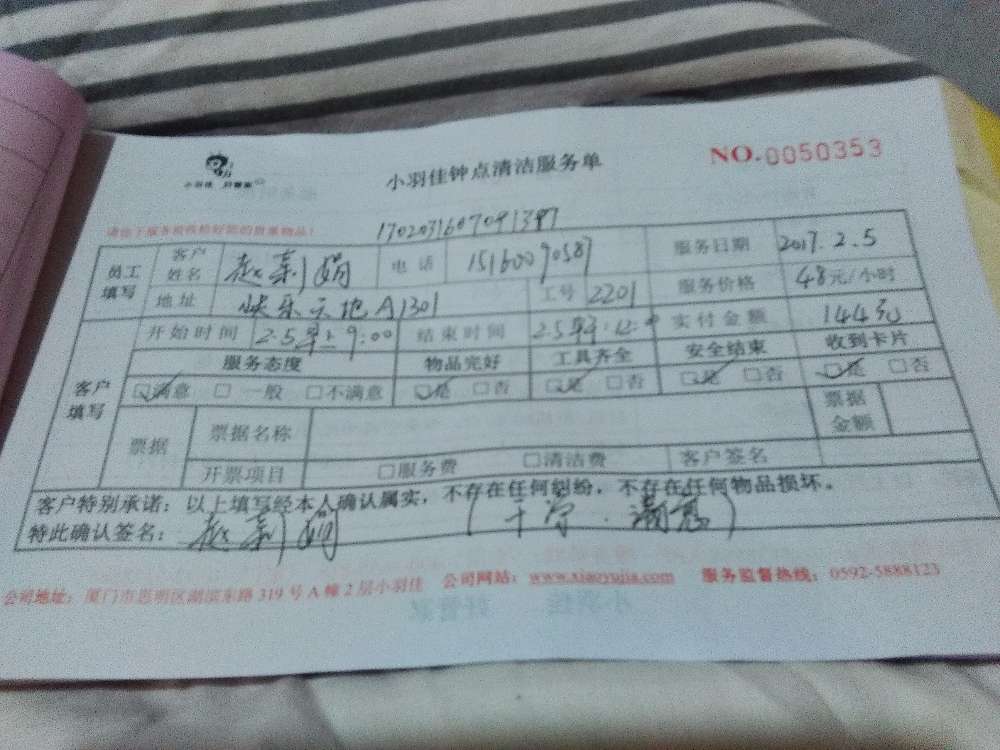 小羽佳 好管家
小羽佳钟点清洁服务单
NO.0050353
请您下服务前收拾好您的贵重物品!
员工填写 客户姓名 赵莉娟 电话 15160090587 服务日期 2017.2.5
地址 快乐天地A1301 工号 2201 服务价格 48元/小时
开始时间 2.5早上9:00 结束时间 2.5 实付金额 144元
客户填写 服务态度 物品完好 工具齐全 安全结束 收到卡片
☑满意 □一般 □不满意 ☑是 □否 ☑是 □否 ☑是 □否 ☑是 □否
票据 票据名称 票据金额
开票项目 □服务费 □清洁费 客户签名
客户特别承诺:以上填写经本人确认属实,不存在任何纠纷,不存在任何物品损坏。
特此确认签名: 赵莉娟 (干净.满意)
公司地址:厦门市思明区湖滨东路319号A幢2层小羽佳 公司网站:www.xiaoyujia.com 服务监督热线:0592-5888123